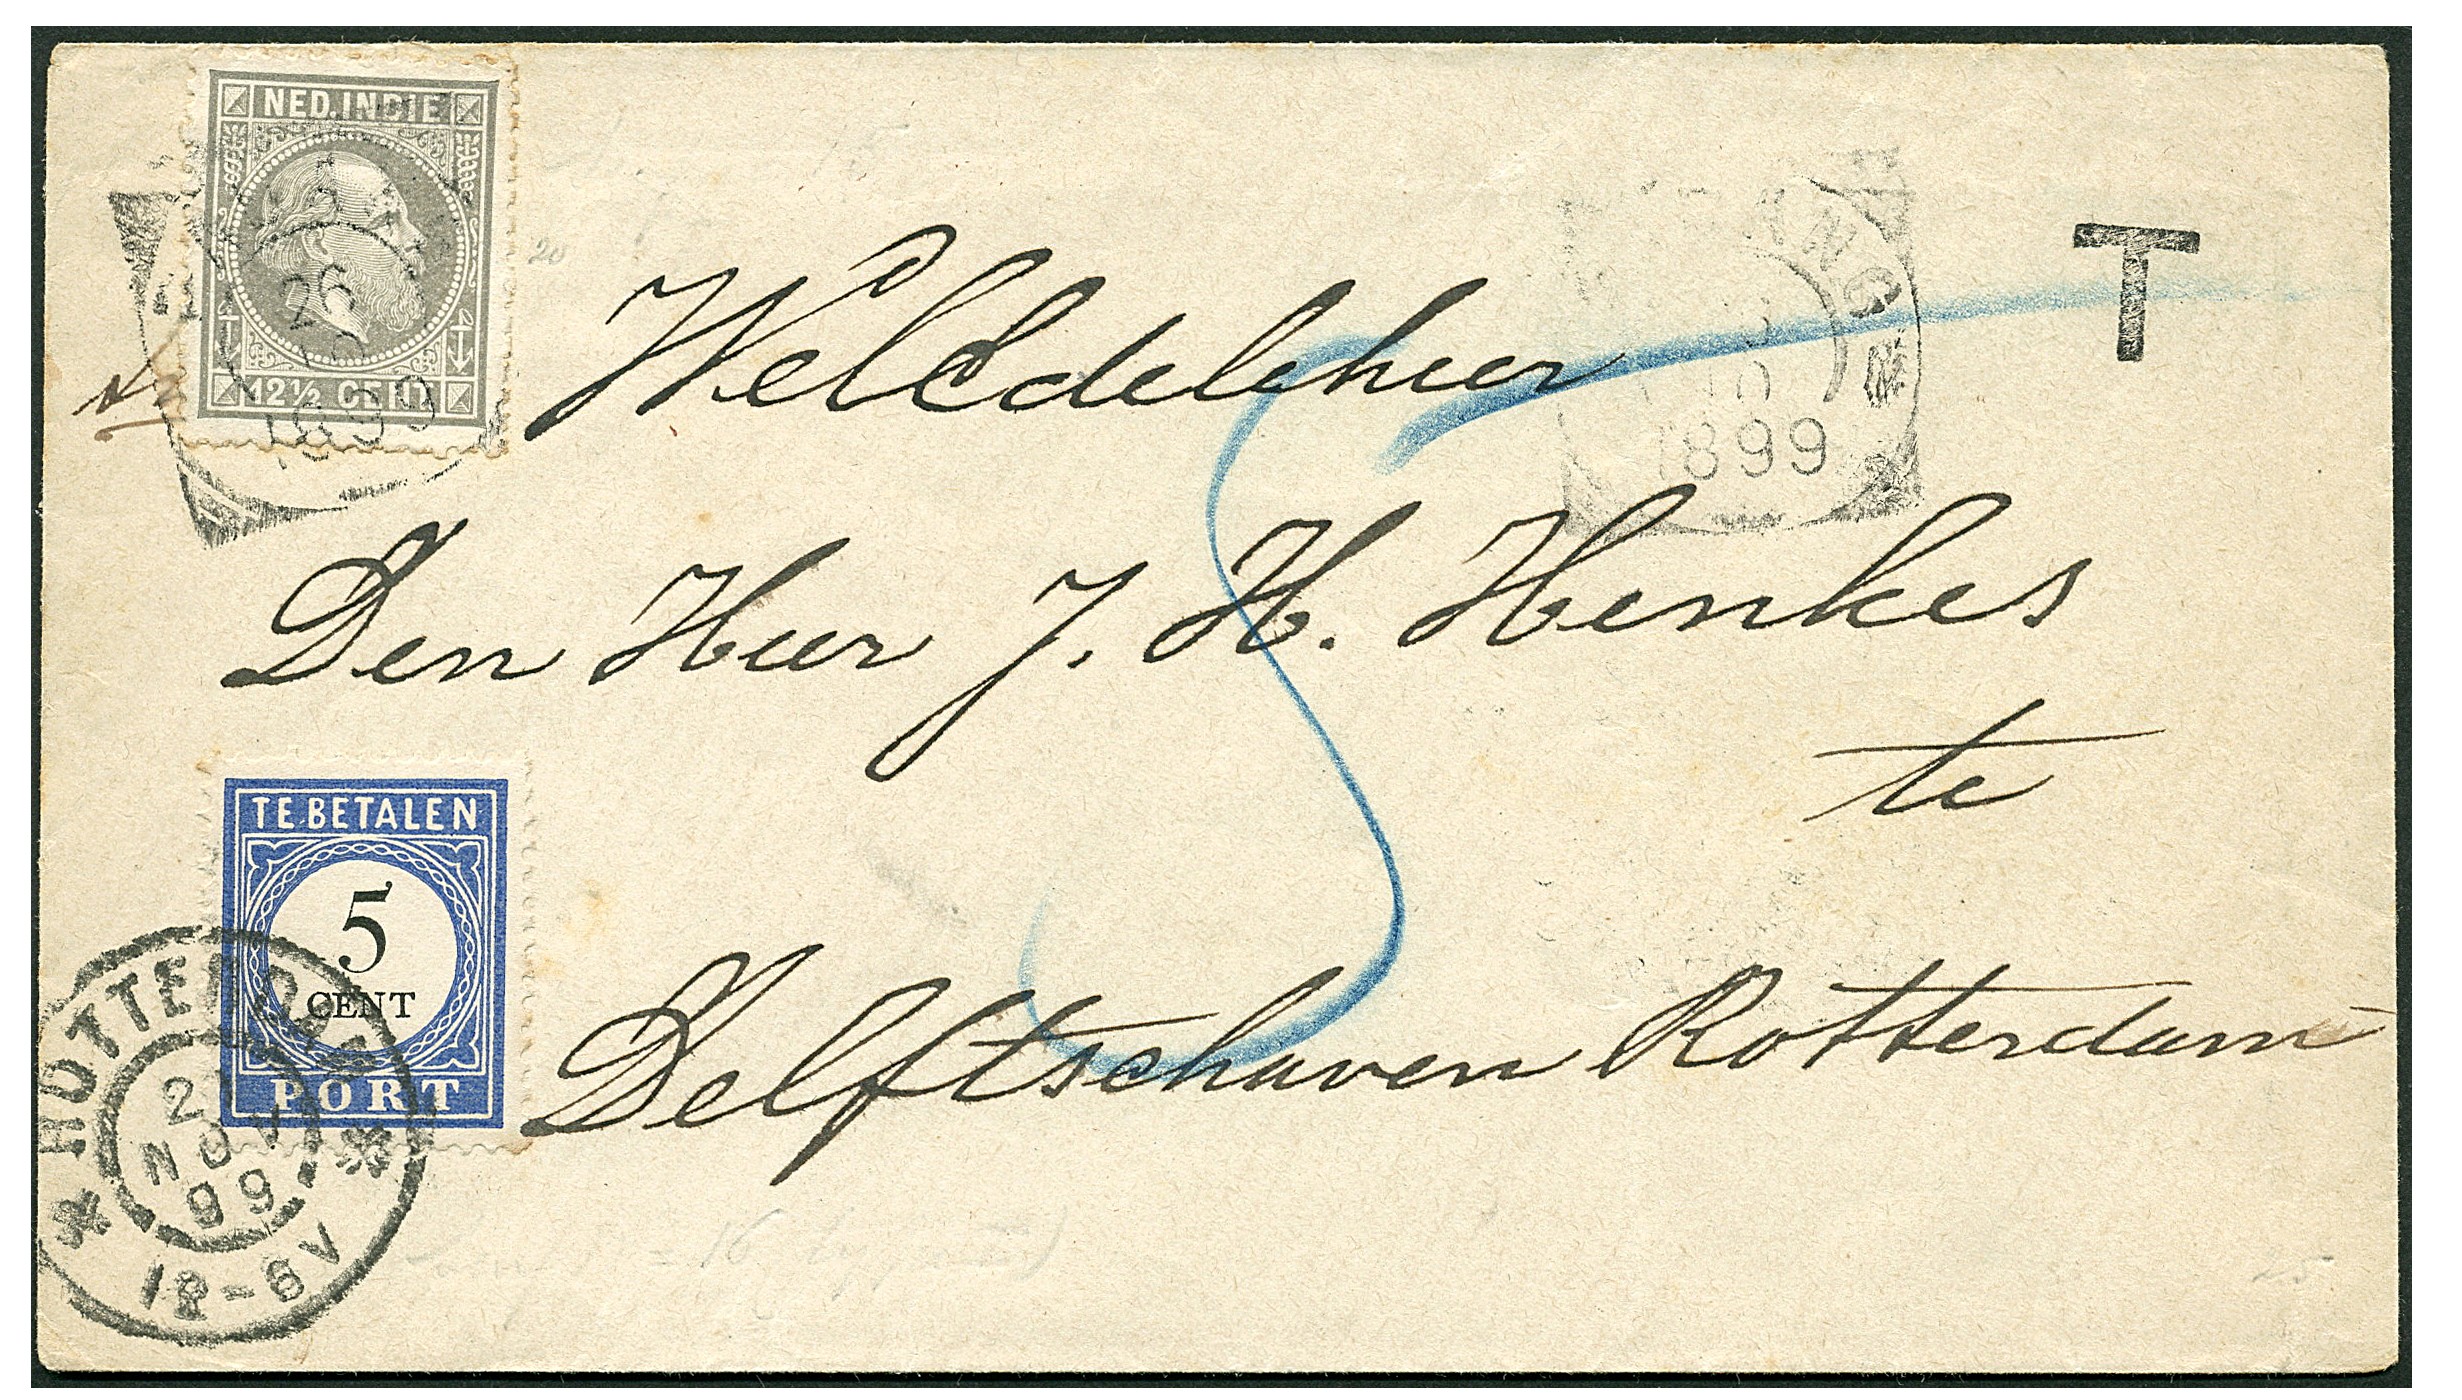 NED. INDIE
26
10
1899
12½ CENT
T
10
1899
WelEdeleheer
Den Heer J. H. Henkes
te
Delftschaven Rotterdam
5
TE BETALEN
5
CENT
PORT
ROTTERDAM
NOV
99
12-6V